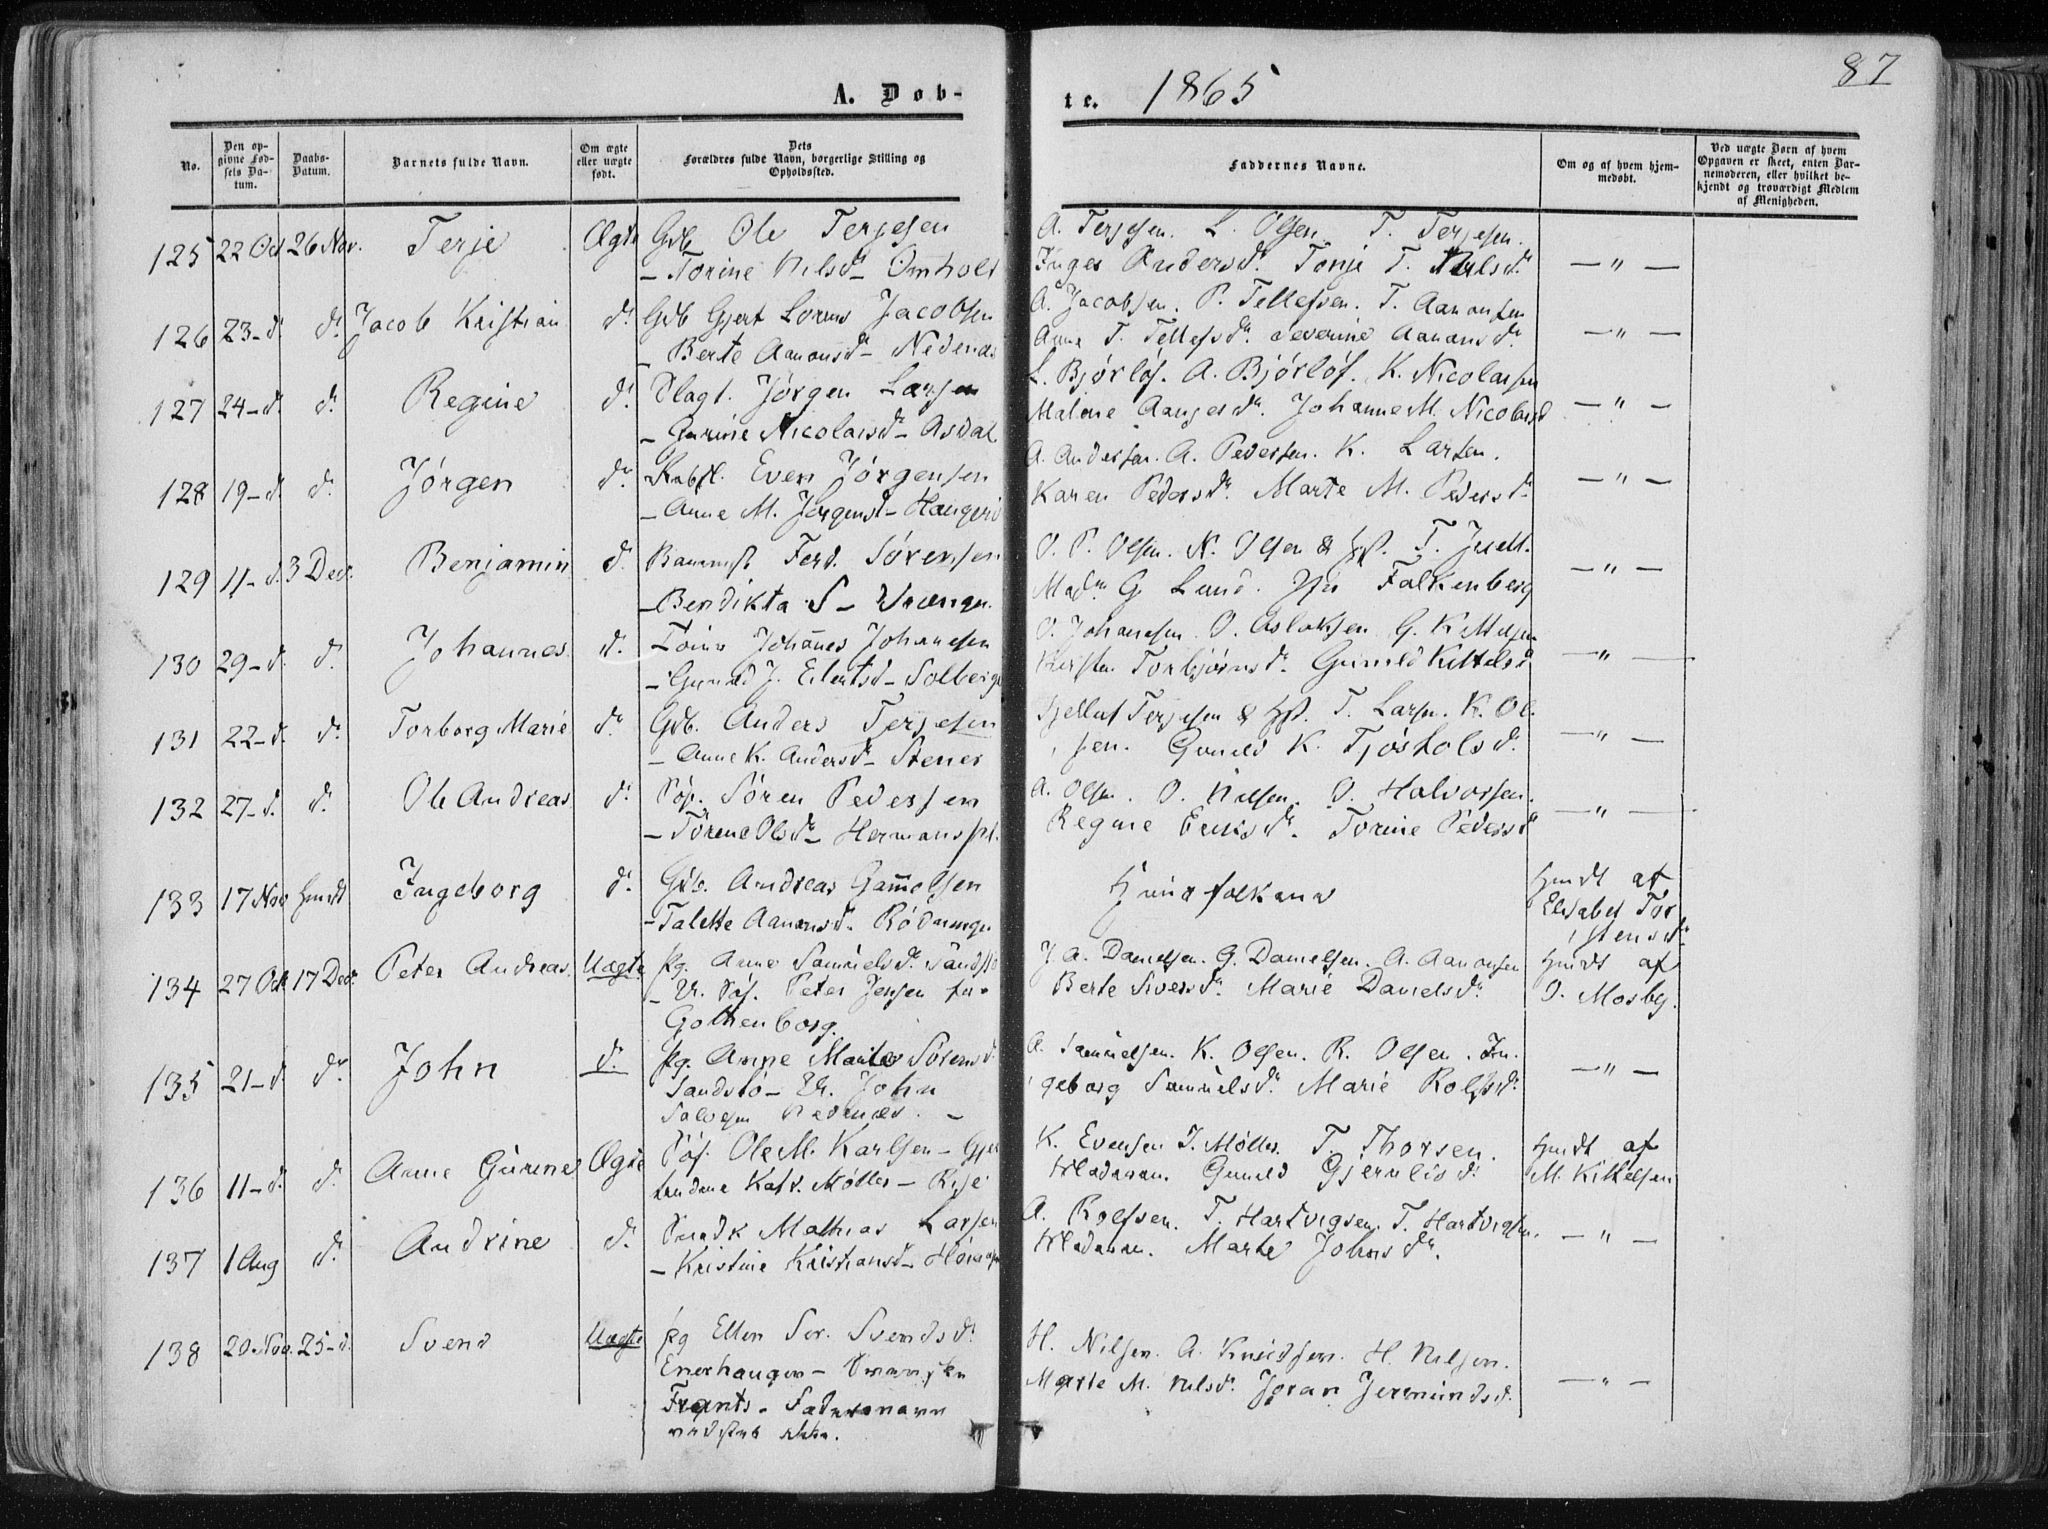 A. Døb-
te. 1865
87
No.
Den op-
givne Fød-
sels Da-
tum.
Daabs-
Datum.
Barnets fulde Navn.
Om ægte
eller uægte
født.
Dets
Forældres fulde Navn, borgerlige Stilling og
Opholdssted.
Faddernes Navne.
Om og af hvem hjem-
medøbt.
Ved uægte Børn af hvem
Opgaven er skeet, enten Bar-
nemoderen, eller hvilket be-
kjendt og troværdigt Medlem
af Menigheden.
125 22 Oct 26 Nov. Terje Ægte Gdb Ole Terjesen
- Torine Nilsd. - Omholt
A. Terjesen. L. Olsen. T. Terjesen.
Inger Andersd. Tonje T. Nilsd. — " —
126 23 - d. d. Jacob Kristian d. Gdb Gjert Lorens Jacobsen
- Berte Aanonsd - Nedenæs
A. Jacobsen. P. Tellefsen. T. Aanonsen
Anne T. Tellefsd. Severine Aanonsd. — " —
127 24 - d. d. Regine d. Slagt. Jørgen Larsen
- Gurine Nicolaisd - Asdal
L. Bjórlóf. A. Bjórlóf. K. Nicolaisen
Malene Aangersd. Johanne M. Nicolaisd — " —
128 19 - d. d. Jørgen d. Even Jørgensen
- Anne M. Jørgensd -
A. Andersen. A. Pedersen. K. Larsen.
Karen Pedersd. Marte M. Pedersd. — " —
129 11 - d. 3 Dec. Benjamin d. Ferd. Sørensen
- Bendikta S -
O. P. Olsen. N. Olsen & Hst. T. Juell.
Mad. G. Lund. Jfr Falkenberg — " —
130 29 - d. d. Johannes d. Johannes Johannesen
- Gunild J. Eilertsd - Solberg
O. Johannesen. O. Aslaksen G. Kittelsen
Kirsten Torbjørnsd. Gunild Kittelsd — " —
131 22 - d. d. Torborg Marie d. Gdb. Anders Terjesen
- Anne K. Andersd - Stener
Tjellef Terjesen & Hst. T. Larsen. K. Ol-
sen. Gunild K. Tjøstolsd. — " —
132 27 - d. d. Ole Andreas d. Søf. Søren Pedersen
- Torene Olsd - Hermanspl.
A. Olsen. O. Nilsen. O. Halvorsen.
Regine Eriksd. Torine Pedersd — " —
133 17 Nov Hmdt Ingeborg d. Gdb. Andreas Gammelsen
- Talette Aanonsd.
Hjemmefolkene
Hmdt af
Elisabet Tor
stensd.
134 27 Oct 17 Dec. Peter Andreas. Uægte pg. Anne Samuelsd. Sandstø
- U. Søf. Peter Jensen fra
Gothenborg.
J. A. Danielsen. G. Danielsen. A. Aanonsen
Berte Siversd. Marie Danielsd.
Hmdt af
O. Mosby.
135 21 - d. d. John d. pg. Anne Marie Sørensd.
Sandstø - U. John
Salvesen Nedenæs. -
A. Samuelsen. K. Olsen. R. Olsen. In-
geborg Samuelsd. Marie Rolfsd. — " —
136 11 - d. d. Anne Gurine Ægte Søf. Ole M. Karlsen - Gjer
trudine Katr. Møller - Rise
K. Evensen J. Møller. T. Thorsen.
Madamm. Gunild Gjerulfsd.
Hmdt af
M. Kittelsen
137 1 Aug d. Andrine d. Snedk Mathias Larsen
- Kristine Kristiansd -
A. Rolfsen. T. Hartvigsen. T. Hartvigsen.
Madamm. Marte Johnsd. — " —
138 20 Nov. 25 - d. Svend Uægte pg Ellen Ser. Svendsd.
Enerhaugen -
Frants. Fadersnavn
vidstes ikke.
H. Nilsen. A. Knudsen. H. Nilsen.
Marte M. Nilsd. Joran Jermundsd. — " —